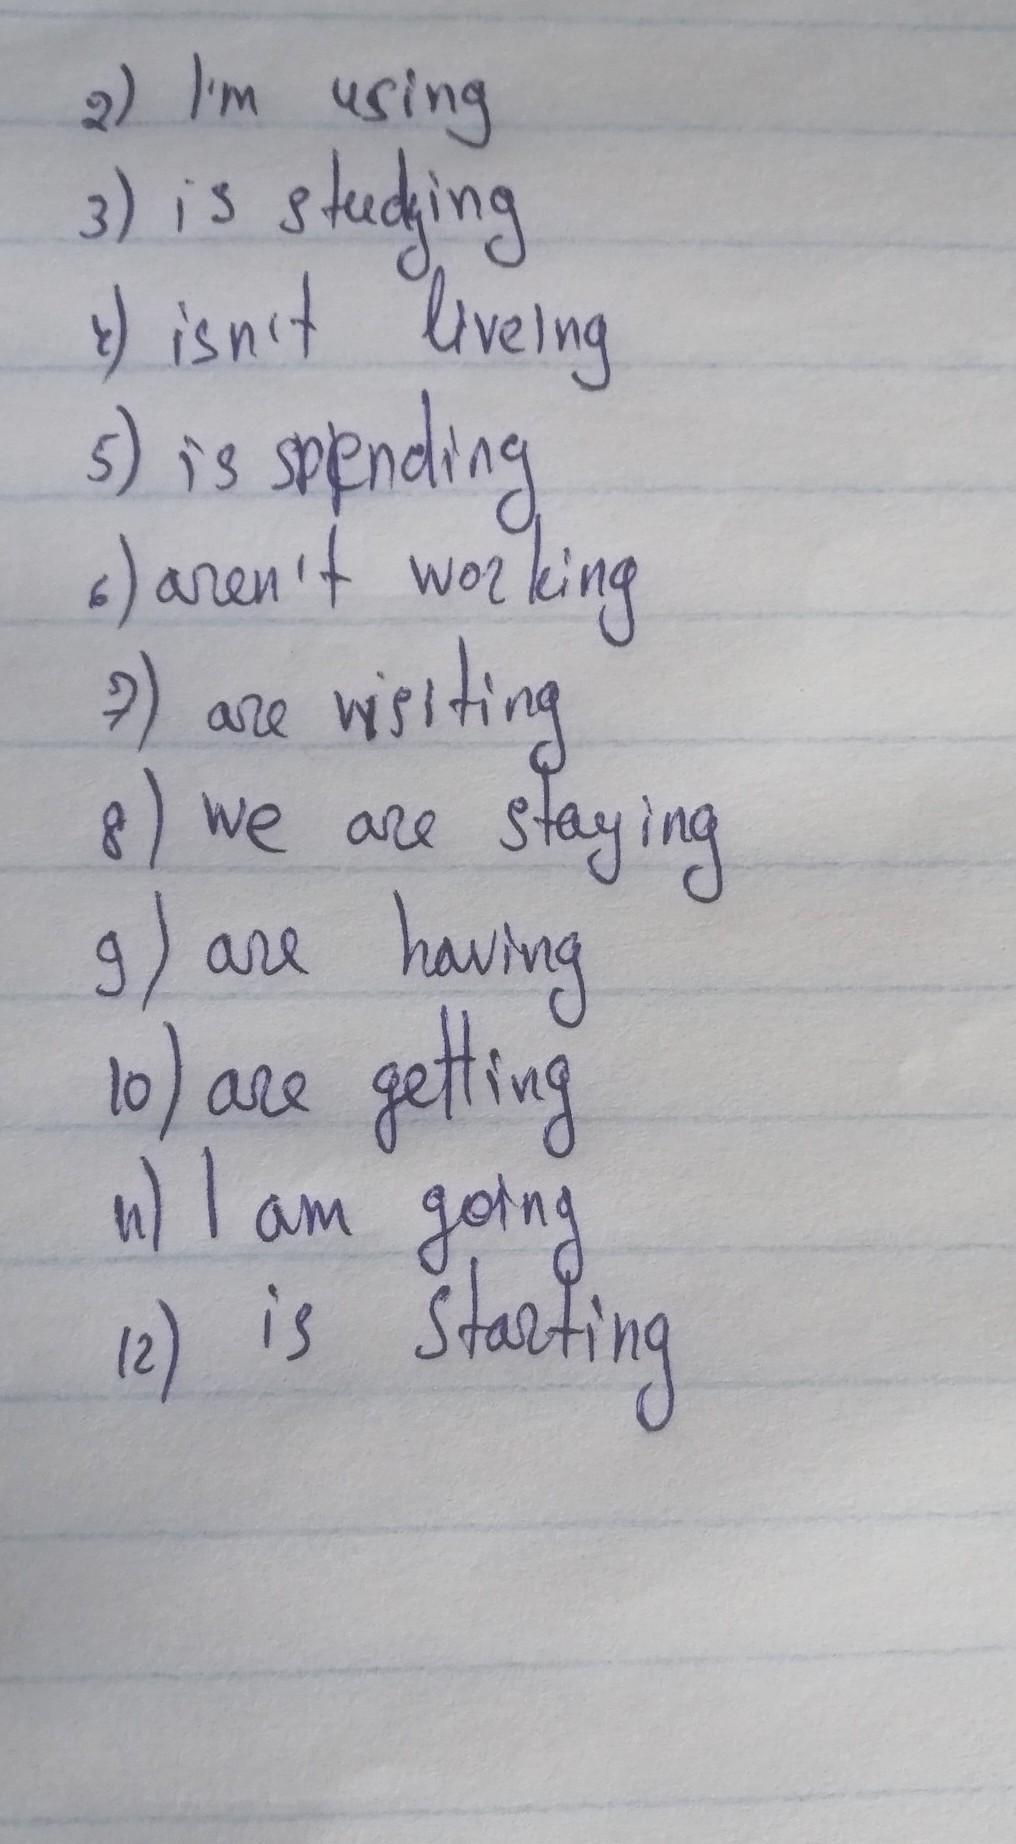 2) I'm using
3) is studying
4) isn't liveing
5) is spending
6) aren't working
7) are visiting
8) we are staying
9) are having
10) are getting
11) I am going
12) is starting